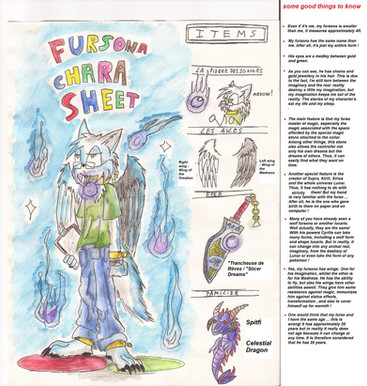 FURSONA
CHARA
SHEET
ITEMS
LA PIERRE DES SONGES
MEEOW!
LES AILES
Right
wing :
Wing of
the
Creation
Left wing
: Wing of
the
Madness
EPEE
"Trancheuse de
Rêves / "Slicer
Dreams"
FAMILIER
Spitfi
Celestial
Dragon
some good things to know
Even if it's me, my fursona is smaller
than me, it measures approximately 4ft.
My fursona has the same name than
me. After all, it's just my anthro form !
His eyes are a medley between gold
and green.
As you can see, he has chains and
gold jewellery in his hair. This is due to
the fact, I'm still torn between the
imaginary and the real reality
destroy a little my imagination, but
my imagination keeps me out of the
reality. The stories of my character's
eat my life and my sleep.
The main feature is that my furso
master of magic, especially the
magic associated with the space
afforded by the special magic
stone attached to the collar.
Among other things, this stone
also allows the controller not
only his own dream but the
dreams of others. Thus, it can
easily find what they want on
time.
Another special feature is the
creator of
and the whole universe
Thus, it has nothing to do with
strictly them! But my hand
is very familiar with the force ...
After all, he is the one who gave
birth to them on paper and on
computer !
Many of you have already seen a
wolf fursona or another lucario
Well actually, they are the same!
With his powers Cyrille can take
many forms, including a wolf form
and shape lucario. But in reality, it
can change into any animal real,
imaginary, from the bestiary of
Lunar or even take the form of any
pokemon !
Yes, my fursona has wings. One for
his Imagination, whilst the other is
for his Madness. He has the ability
to fly, but also his wings have other
abilities aswell. They give him some
resistance against magic, immunizes
him against status effects,
transformation...and also to cover
himself up for warmth !
One would think that my furso and
I have the same age ... this is
wrong! It has approximately 20
years but in reality it really does
not age because it can change at
any time. It is therefore considered
that he has 20 years.